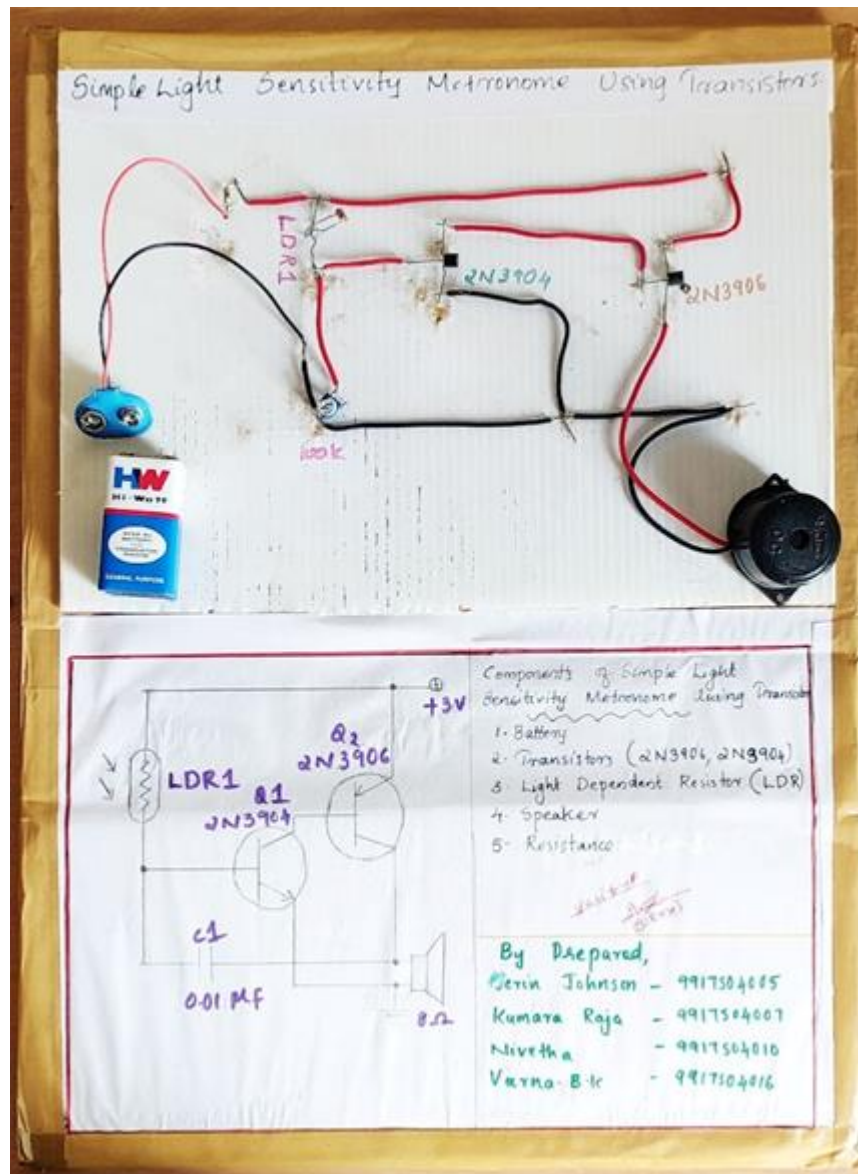 Simple Light Sensitivity Metronome Using Transistors.
LDR1
2N3904
2N3906
100k
HW
Hi-Watt
GENERAL PURPOSE
+3V
Q2
2N3906
LDR1
Q1
2N3904
C1
0.01 µF
8Ω
Components of Simple Light
Sensitivity Metronome Using Transistor
1. Battery
2. Transistors (2N3906, 2N3904)
3. Light Dependent Resistor (LDR)
4. Speaker
5- Resistance
By Prepared,
Jerin Johnson - 9917504005
Kumara Raja - 9917504007
Nivetha - 9917504010
Varna. B.K - 9917504016